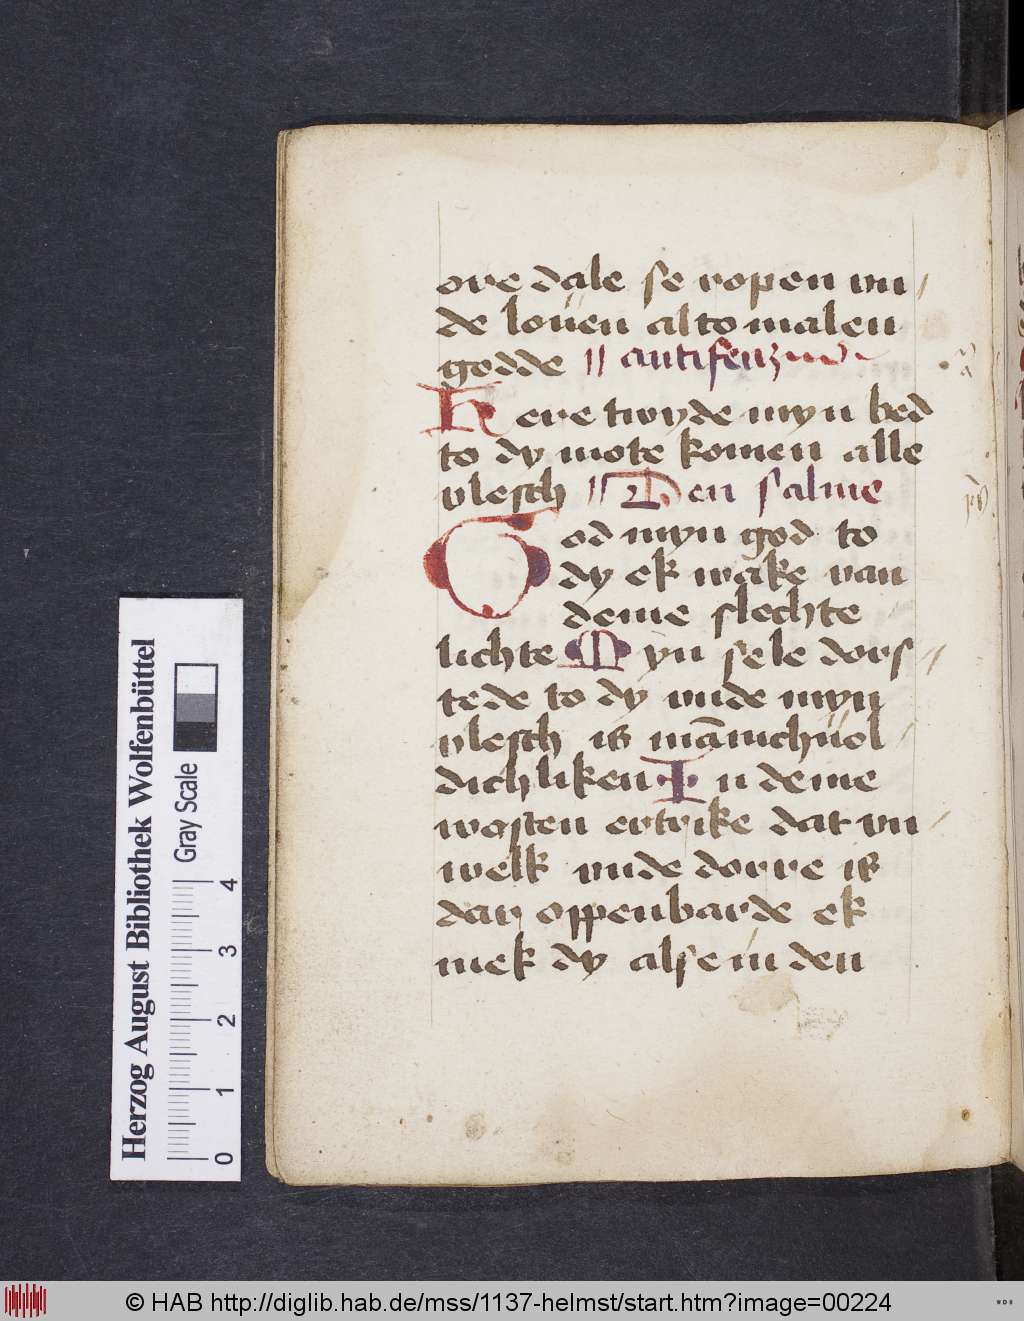 ore dale se ropen vn/
de louen altomalen
godde // antifen
Here twyde myn bed
to dy mote komen alle
vlesch // Den salme
God myn god to
dy ek wake van
deme slechte
lichte Myn sele dors//
tede to dy vnde myn
vlesch is mānichuol/
dichliken In deme
wosten ertrike dat vn/
welk vnde dorre is
dar oppenbarde ek
mek dy alse in den
Herzog August Bibliothek Wolfenbüttel
Gray Scale
0 1 2 3 4
© HAB http://diglib.hab.de/mss/1137-helmst/start.htm?image=00224